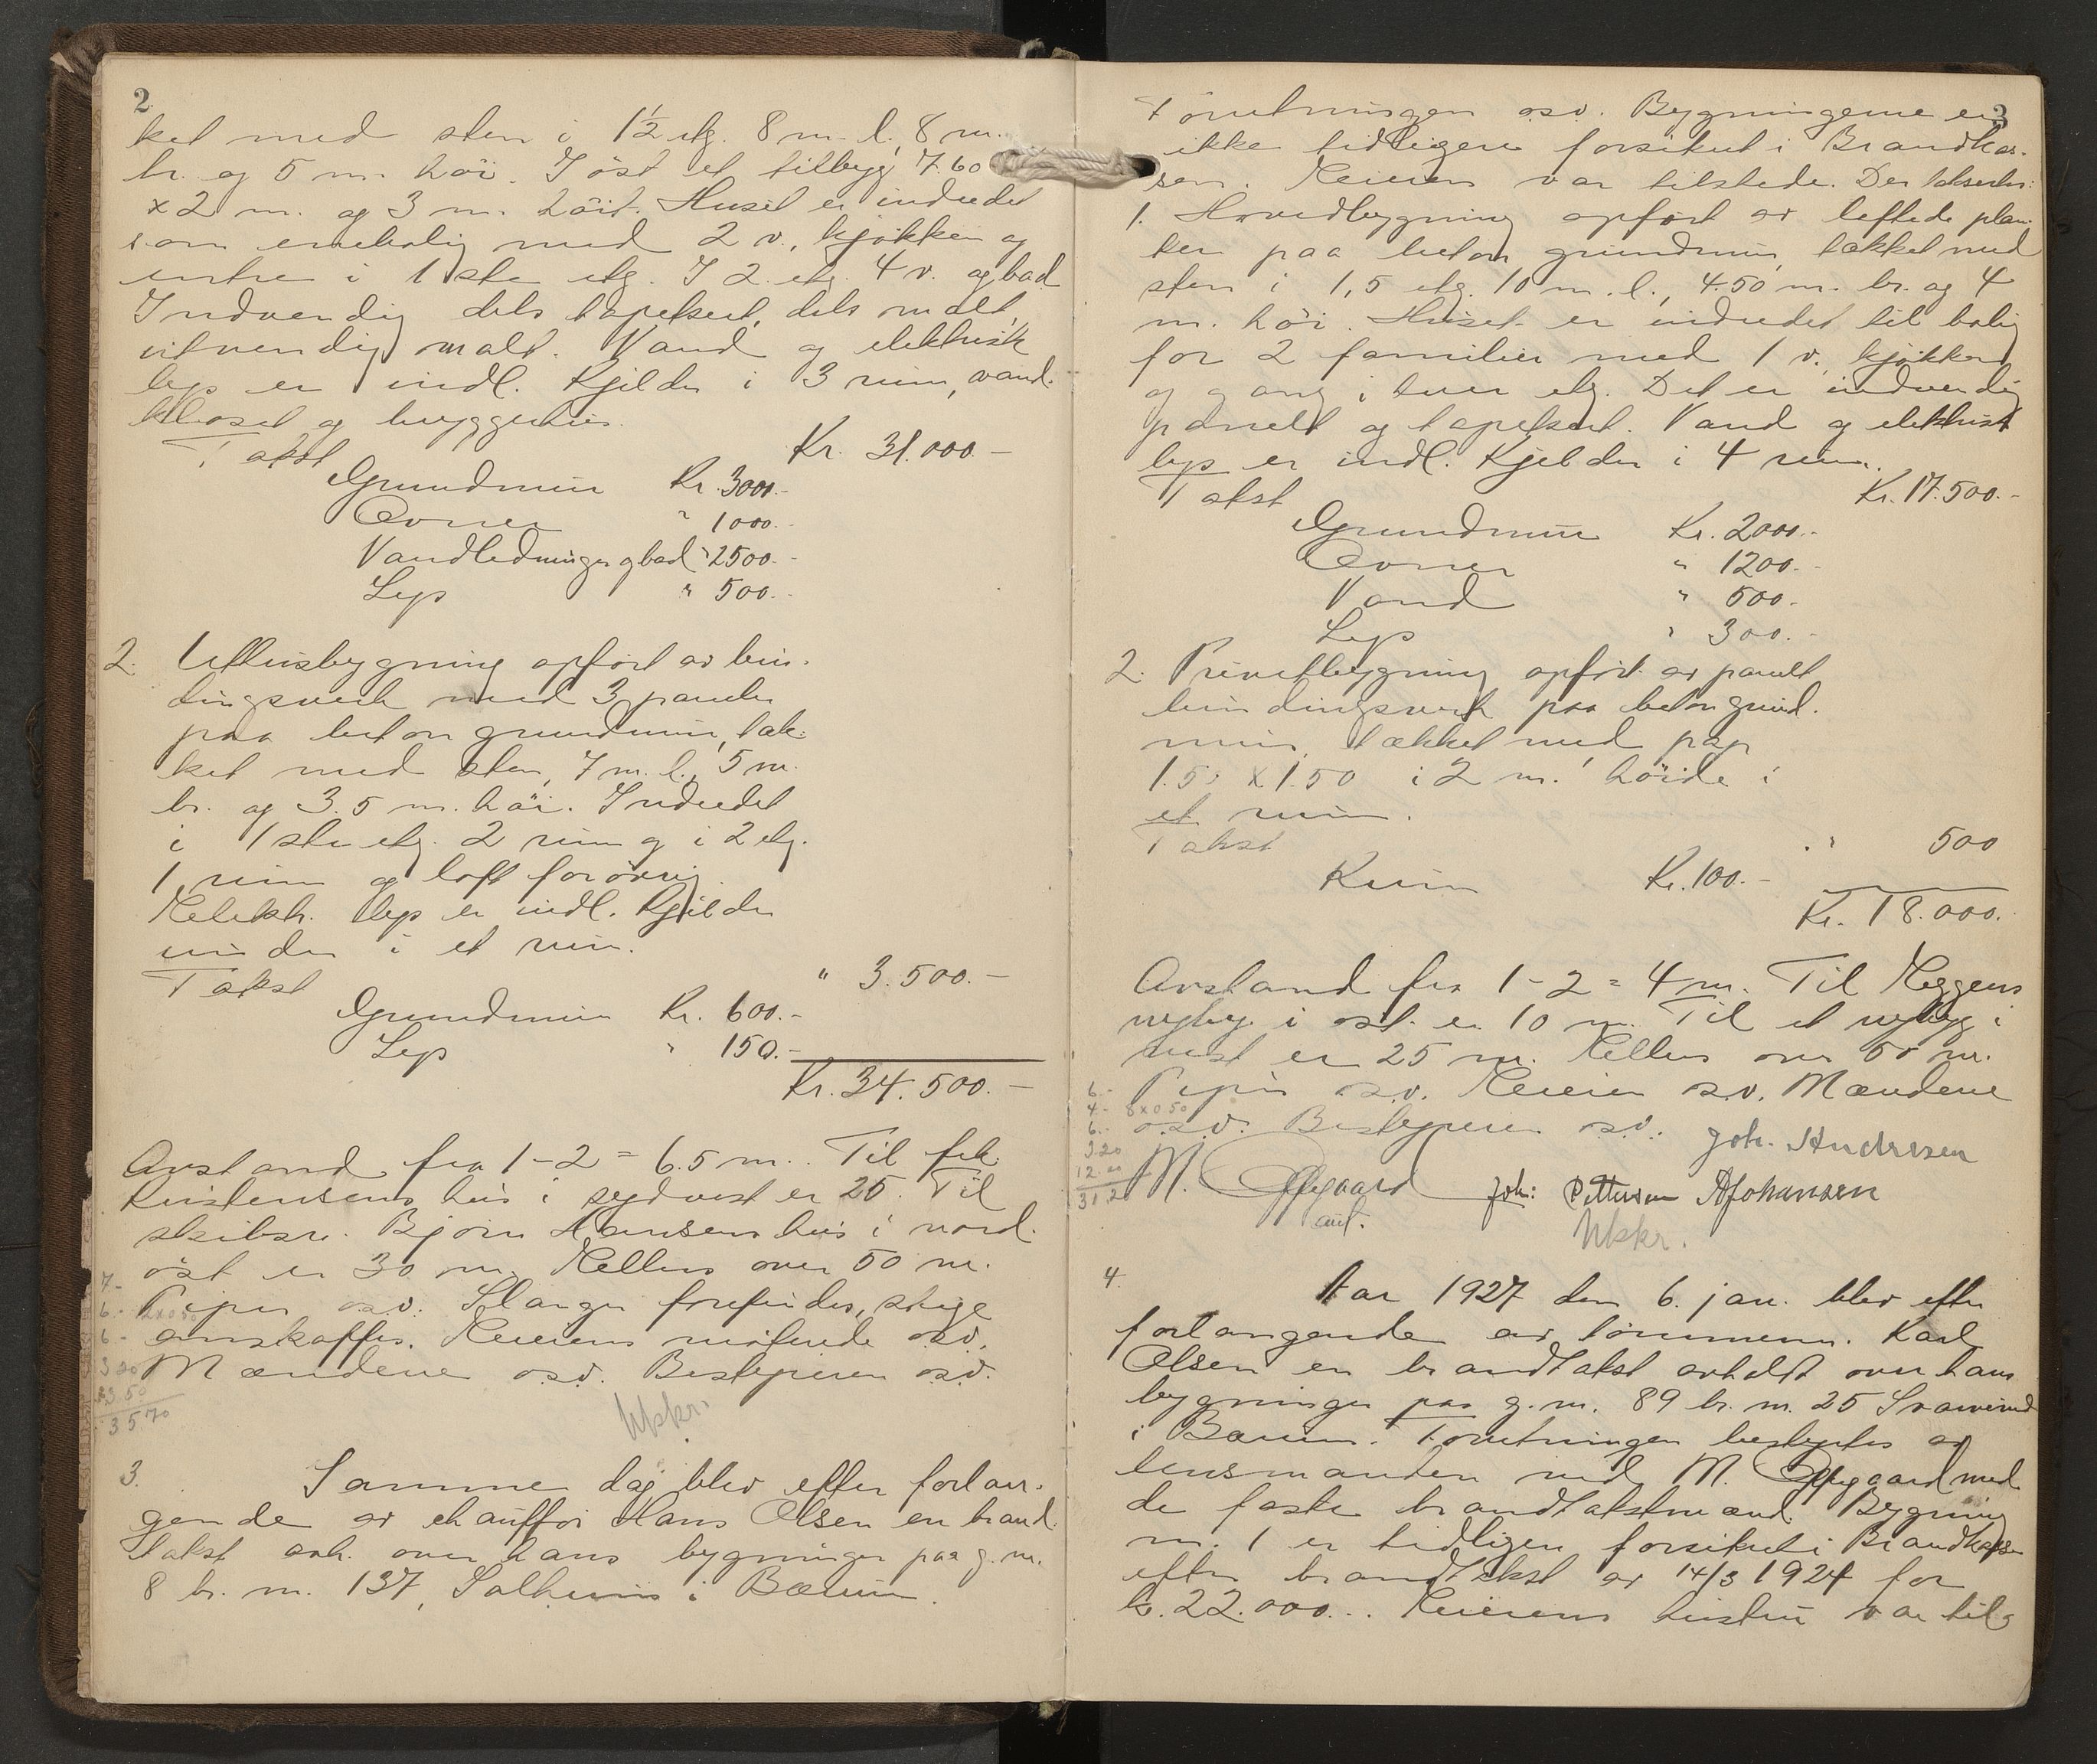 2
ket med sten i 1½ etg. 8 m. l., 8 m.
br. og 5 m. höi. I öst et tilbygg 7.60
x 2 m. og 3 m. höit. Huset er indredet
som enebolig med 2 v., kjøkken og
entre i 1ste etg. I 2. etg. 4 v. og bad
Indvendig dels tapetsert, dels malt,
utvendig malt. Vand og elektrisk
lys er indl. Kjelder i 3 rum, vand-
kloset og bryggerhus.
Takst Kr. 31.000.-
Grundmur Kr. 3000.-
Ovner " 1000.-
Vandledninger og bad " 2500.-
Lys " 500.-
2. Uthusbygning opført av bin-
dingsverk med 3 paneler
paa beton grundmur, tæk-
ket med sten, 7 m. l., 5 m.
br. og 3.5 m. höi. Indredet
i 1ste etg. 2 rum og i 2 etg.
1 rum og loft forøvrig.
Elektr. lys er indl. Kjelder
under i et rum.
Takst " 3.500.-
Grundmur Kr. 600.-
Lys " 150.-
Kr. 34.500.-
Avstand fra 1-2 = 6.5 m. Til frk.
Kristensens hus i sydvest er 25. Til
skibsr. Bjørn Hansens hus i nord-
öst er 30 m. Ellers over 50 m.
7.-
6.- Piper o.s.v. Slanger forefindes, stige
6.- anskaffes. Eierens nærværende o.s.v.
3 20 Mændene o.s.v. Bestyreren o.s.v.
13.50
35 70
Utskr.
3. Samme dag blev efter forlan-
gende av chauffør Hans Olsen en brand-
takst avh. over hans bygninger paa g. nr.
8 br. nr. 137, Solheim i Bærum.
3
Forretningen o.s.v. Bygningerne er
ikke tidligere forsikret i Brandkas-
sen. Eieren var tilstede. Der taksertes:
1. Hovedbygning opført av løftede plan-
ker paa beton grundmur, tækket med
sten i 1,5 etg. 10 m. l., 4.50 m. br. og 4
m. höi. Huset er indredet til bolig
for 2 familier med 1 v., kjøkken
og gang i hver etg. Det er indvendig
panelt og tapetsert. Vand og elektrisk
lys er indl. Kjelder i 4 rum.
Takst Kr. 17.500.-
Grundmur Kr. 2000.-
Ovner " 1200.-
Vand " 500.-
Lys " 300.-
2. Privetbygning opført av panelt
bindingsverk paa beton grund-
mur, tækket med pap
1.50 x 1.50 i 2 m. höide i
et rum.
Takst " 500
Kum Kr. 100.-
Kr. 18.000.
Avstand fra 1-2 = 4 m. Til Heggens
nybyg i öst er 10 m. Til et nybyg i
vest er 25 m. Ellers over 50 m.
6.- Piper o.s.v. Eieren o.s.v. Mændene
4.- 8 x 0 50
6.- o.s.v. Bestyreren o.s.v. Joh. Andresen
3 20
12.00 M. Oppegaard Joh: Pettersen A Johansen
31,20
aut.
Utskr.
4. Aar 1927 den 6. jan. blev efter
forlangende av tömmerm. Karl
Olsen en brandtakst avholdt over hans
bygninger paa g. nr. 89 br. nr. 25
i Bærum. Forretningen bestyrtes av
lensmanden ved M. Oppegaard med
de faste brandtakstmænd. Bygning
nr. 1 er tidligere forsikret i Brandkassen
efter brandtakst av 14/3 1924 for
kr. 22.000... Eierens hustru var til-